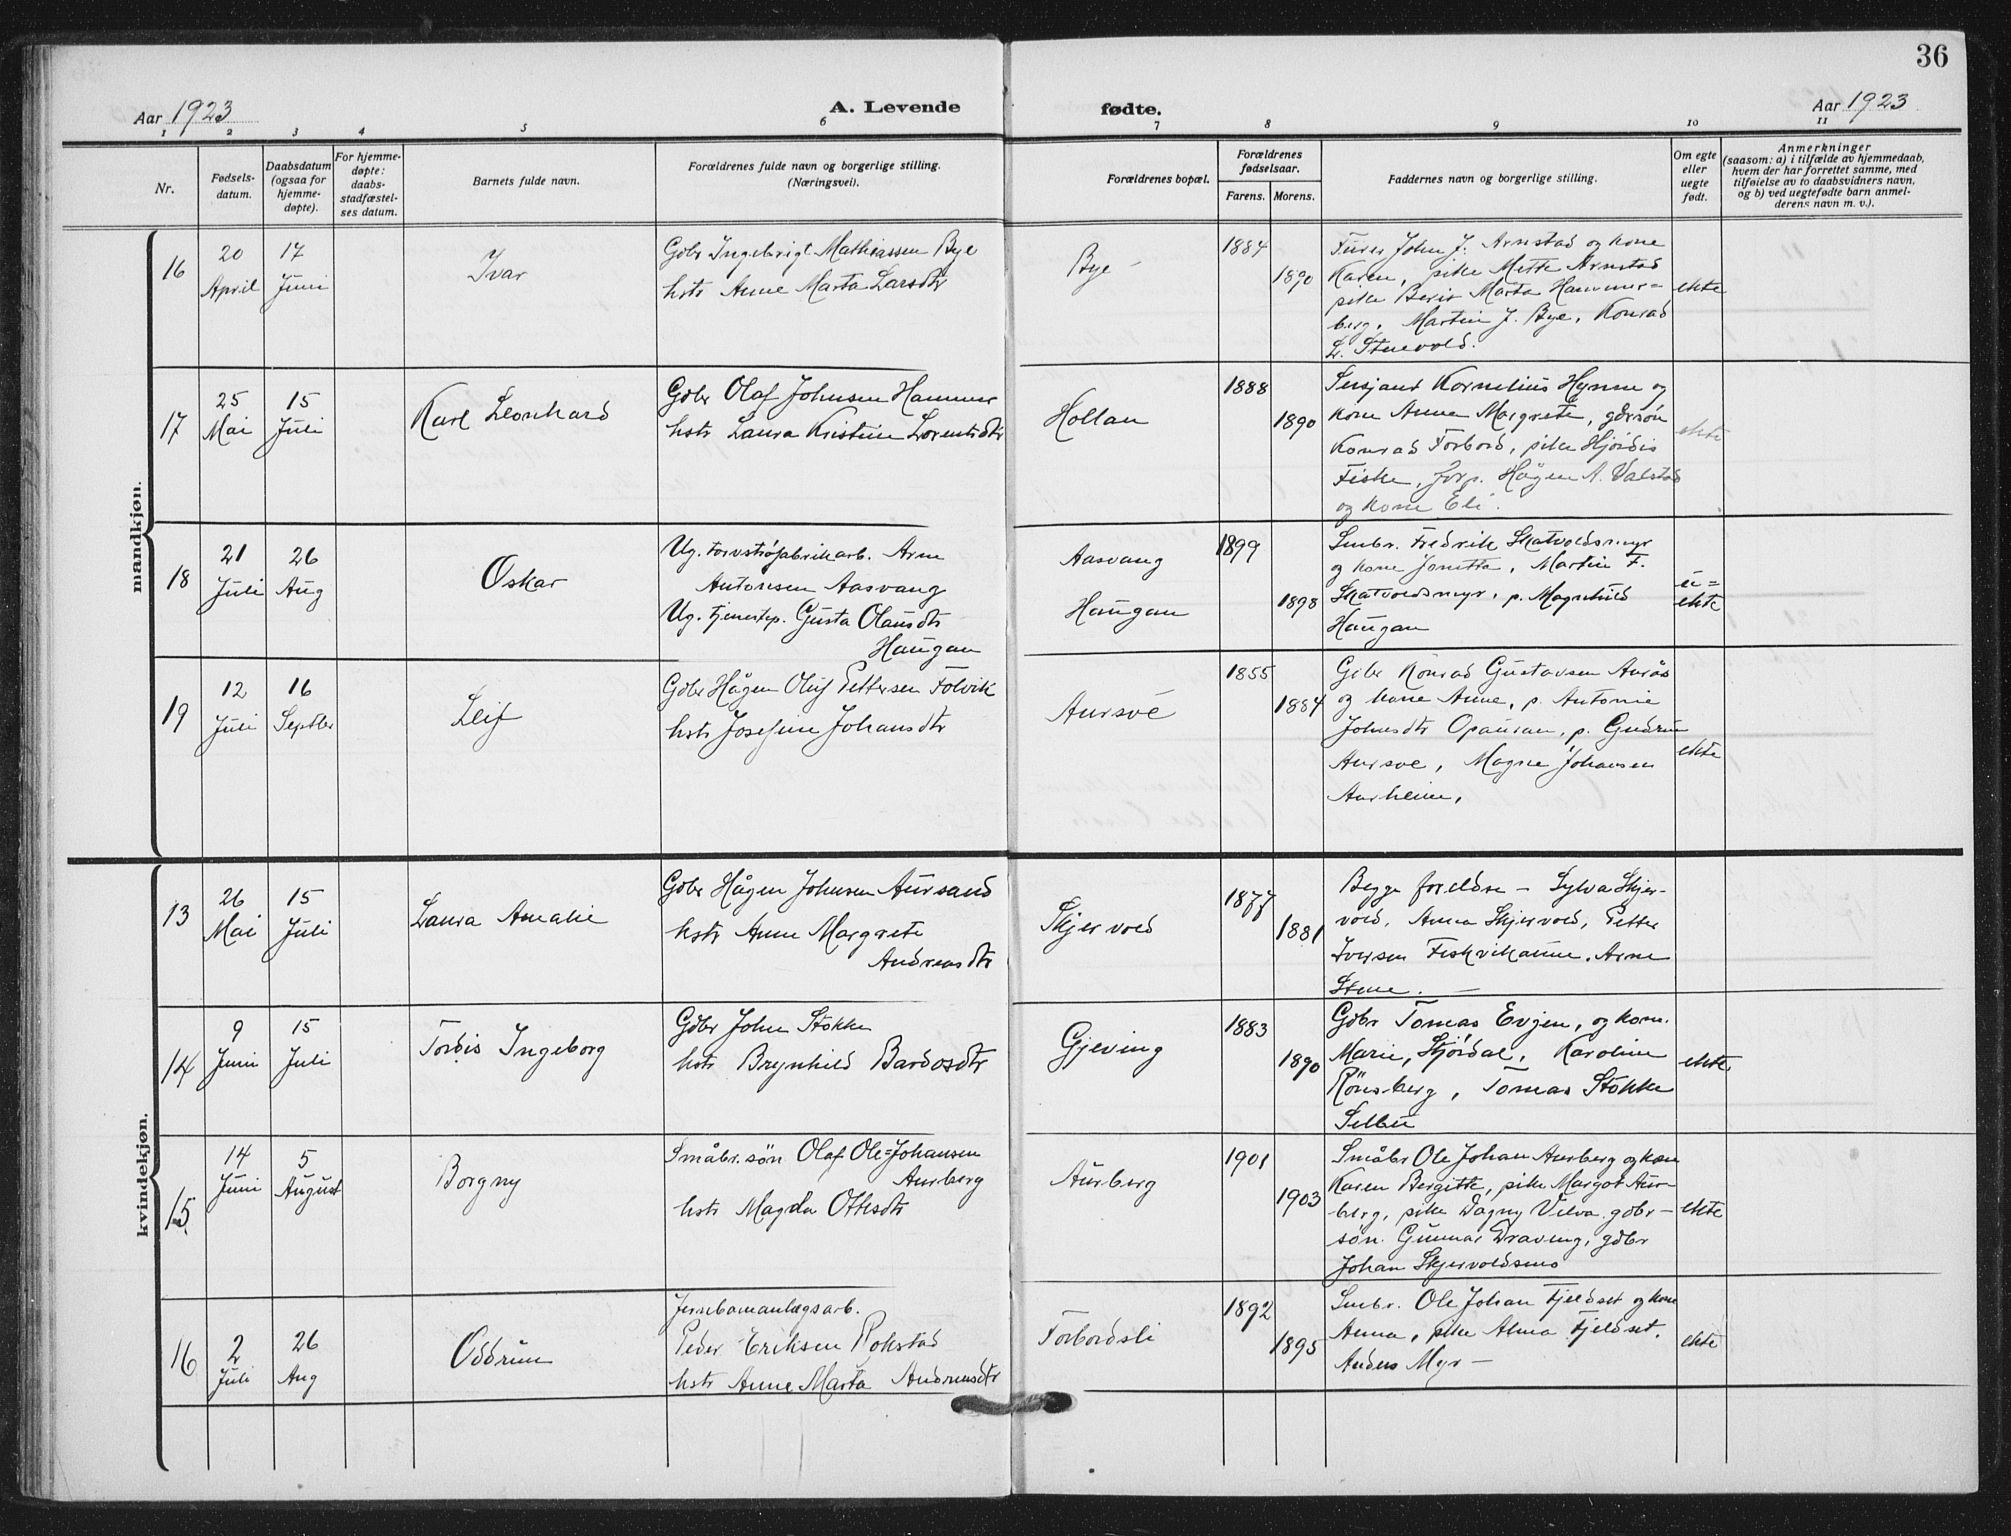 36
Aar 1923 A. Levende fødte. Aar 1923
1 2 3 4 5 6 7 8 9 10 11
Nr.
Fødsels-
datum.
Daabsdatum
(ogsaa for
hjemme-
døpte).
For hjemme-
døpte:
daabs-
stadfæstel-
ses datum.
Barnets fulde navn.
Forældrenes fulde navn og borgerlige stilling.
(Næringsvei).
Forældrenes bopæl.
Forældrenes
fødselsaar.
Farens. Morens.
Faddernes navn og borgerlige stilling.
Om egte
eller
uegte
født.
Anmerkninger
(saasom: a) i tilfælde av hjemmedaab,
hvem der har forrettet samme, med
tilføielse av to daabsvidners navn,
og b) ved uegtefødte barn anmel-
derens navn m. v.).
mandkjøn.
16
20
April
17
Juni
Ivar
Gdbr Ingebrigt Mathiassen Bye
hstr Anne Marta Larsdtr
Bye
1884
1890
Furer John J. Arnstad og kone
Karen, pike Mette Arnstad
pike Berit Marta Hammer=
berg, Martin J. Bye, Konrad
L. Stuevold.
ekte
17
25
Mai
15
Juli
Karl Leonhard
Gdbr Olaf Johnsen Hammer
hstr Laura Kristine Lorentsdtr
Hollan
1888
1890
Sersjant Kornelius Hynne og
kone Anna Margrete, gdrsøn
Konrad Forbord, pike Hjørdis
Fiske, forp. Hågen A. Valstad
og kone Eli.
ekte
18
21
Juli
26
Aug
Oskar
Ug. torvstrøfabrikarb. Arne
Antonsen Aasvang
Ug. tjenestep. Gusta Olausdtr
Haugan
Aasvang
Haugan
1899
1898
Smbr. Fredrik Skatvoldsmyr
og kone Jonetta, Martin F.
Skatvoldsmyr, p. Magnhild
Haugan
u=
ekte
19
12
Juli
16
Septbr
Leif
Gdbr Hågen Oluf Pettersen Folvik
hstr Josefine Johansdtr
Aursve
1855
1884
Gdbr Konrad Gustavsen Aurås
og kone Anne, p. Antonie
Johnsdtr Opauran, p. Gudrun
Aursve, Magne Johansen
Aurheim,
ekte
kvindekjøn.
13
26
Mai
15
Juli
Laura Amalie
Gdbr Hågen Johnsen Aursand
hstr Anne Margrete
Andreasdtr
Skjervold
1877
1881
Begge foreldre – Sylva Skjer-
vold, Anna Skjervold, Petter
Iversen Fiskvikaune, Arne
Stene. –
14
9
Juni
15
Juli
Tordis Ingeborg
Gdbr John Stokke
hstr Brynhild Bardosdtr
Gjeving
1883
1890
Gdbr Tomas Evjen, og kone
Marie, Stjørdal, Karoline
Rønsberg, Tomas Stokke
Selbu
ekte
15
14
Juni
5
August
Borgny
Småbr.søn Olaf Ole=Johansen
Aurberg
hstr Magda Ottesdtr
Aurberg
1901
1903
Småbr Ole Johan Aurberg og kone
Karen Bergitte, pike Margot Aur-
berg, pike Dagny Velva, gdbr-
søn. Gunnar Draveng, gdbr
Johan Skjervoldsmo
ekte
16
2
Juli
26
Aug
Oddrun
Jernbaneanlægsarb.
Peder Eriksen Rokstad
hstr Anne Marta Andreasdtr
Forbordsli
1892
1895
Smbr. Ole Johan Fjeldset og kone
Anna, pike Alma Fjeldset,
Anders Myr –
ekte